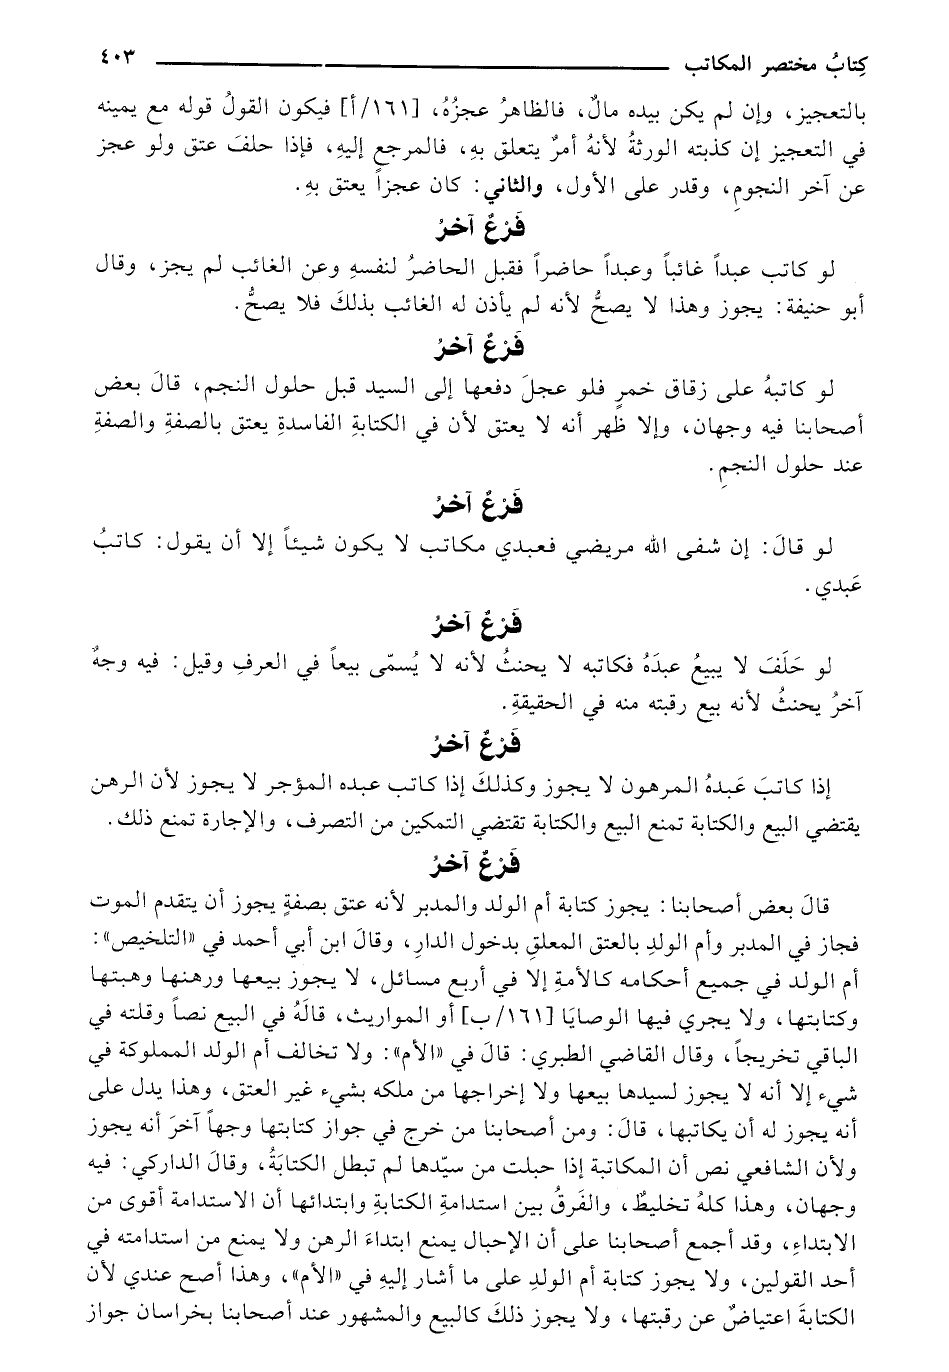 كِتابُ مختصر المكاتب ٤٠٣
بالتعجيز، وإن لم يكن بيده مالٌ، فالظاهرُ عجزُهُ، [١٦١/أ] فيكون القولُ قوله مع يمينه
في التعجيز إن كذبته الورثةُ لأنهُ أمرٌ يتعلق بهِ، فالمرجع إليهِ، فإذا حلفَ عتق ولو عجز
عن آخر النجومِ، وقدر على الأول، والثاني: كان عجزاً يعتق بهِ.
فَرْعٌ آخرُ
لو كاتب عبداً غائباً وعبداً حاضراً فقبل الحاضرُ لنفسهِ وعن الغائب لم يجز، وقال
أبو حنيفة: يجوز وهذا لا يصحُّ لأنه لم يأذن له الغائب بذلكَ فلا يصحُّ.
فَرْعٌ آخرُ
لو كاتبهُ على زقاق خمرٍ فلو عجلَ دفعها إلى السيد قبل حلول النجم، قالَ بعض
أصحابنا فيه وجهان، وإلا ظهر أنه لا يعتق لأن في الكتابةِ الفاسدةِ يعتق بالصفةِ والصفةِ
عند حلول النجمِ.
فَرْعٌ آخرُ
لو قالَ: إن شفى الله مريضي فعبدي مكاتب لا يكون شيئاً إلا أن يقول: كاتبُ
عَبدي.
فَرْعٌ آخرُ
لو حَلَفَ لا يبيعُ عبدَهُ فكاتبه لا يحنثُ لأنه لا يُسمّى بيعاً في العرفِ وقيل: فيه وجهٌ
آخرُ يحنثُ لأنه بيع رقبته منه في الحقيقةِ.
فَرْعٌ آخرُ
إذا كاتبَ عَبدهُ المرهون لا يجوز وكذلكَ إذا كاتب عبده المؤجر لا يجوز لأن الرهن
يقتضي البيع والكتابة تمنع البيع والكتابة تقتضي التمكين من التصرف، والإجارة تمنع ذلك.
فَرْعٌ آخرُ
قالَ بعض أصحابنا: يجوز كتابة أم الولد والمدبر لأنه عتق بصفةٍ يجوز أن يتقدم الموت
فجاز في المدبر وأم الولدِ بالعتق المعلقِ بدخول الدارِ، وقالَ ابن أبي أحمد في «التلخيص»:
أم الولد في جميع أحكامه كالأمةِ إلا في أربع مسائل، لا يجوز بيعها ورهنها وهبتها
وكتابتها، ولا يجري فيها الوصايَا [١٦١/ب] أو المواريث، قالَهُ في البيع نصاً وقلته في
الباقي تخريجاً، وقال القاضي الطبري: قالَ في «الأم»: ولا تخالف أم الولد المملوكة في
شيء إلا أنه لا يجوز لسيدها بيعها ولا إخراجها من ملكه بشيء غير العتق، وهذا يدل على
أنه يجوز له أن يكاتبها، قالَ: ومن أصحابنا من خرج في جواز كتابتها وجهاً آخرَ أنه يجوز
ولأن الشافعي نص أن المكاتبة إذا حبلت من سيّدها لم تبطل الكتابَةُ، وقالَ الداركي: فيه
وجهان، وهذا كلهُ تخليطٌ، والفَرقُ بين استدامةِ الكتابةِ وابتدائها أن الاستدامة أقوى من
الابتداءِ، وقد أجمع أصحابنا على أن الإحبال يمنع ابتداءَ الرهن ولا يمنع من استدامته في
أحد القولين، ولا يجوز كتابة أم الولدِ على ما أشار إليهِ في «الأم»، وهذا أصح عندي لأن
الكتابةَ اعتياضٌ عن رقبتها، ولا يجوز ذلكَ كالبيع والمشهور عند أصحابنا بخراسان جواز